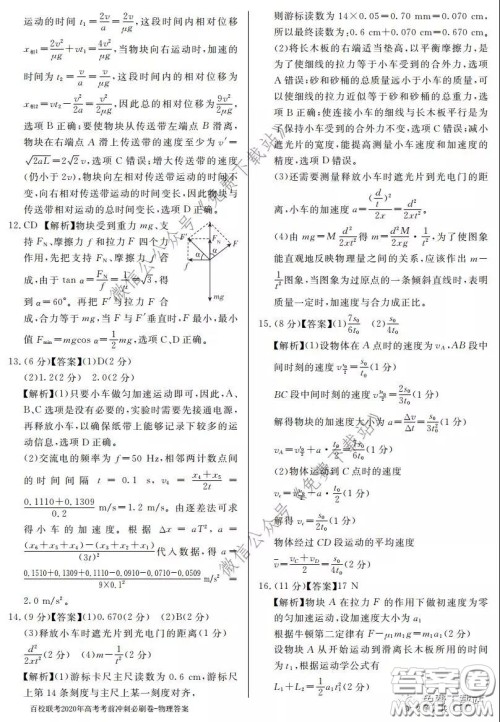 运动的时间 t₁=2v/a=2v/μg,这段时间内相对位移
x相1=2v²/a+vt₁=4v²/μg,当物块向右运动时,加速的
时间为 t₂=v/a=v/μg,这段时间内的相对位移为
x相2=vt₂-v²/2a=v²/2μg,因此总的相对位移为9v²/2μg,
选项B正确;要使物块从传送带左端A点滑离,
物块在右端A点滑上传送带的速度至少为v′=
√2aL=2√2v,选项C错误;增大传送带的速度
(仍小于2v),物块向左相对传送带运动的时间变
长,向右相对传送带运动的时间变长,因此物块与
传送带相对运动的总时间变长,选项D正确。
12.CD 【解析】物块受到重力mg、支
持力FN、摩擦力f和拉力F四个力
作用,先把支持力FN与摩擦力f合
成,由于tan α=FN/f=1/μ=√3,得
到α=60°。再把F′与拉力F合
成,合力等于mg,当F与F′垂直时,F最小,最小
值Fmin=mgcos α=1/2mg,选项C、D正确。
13.(6分)【答案】(1)D(2分)
(2)1.2(2分) 2.0(2分)
【解析】(1)只要小车做匀加速运动即可,因此,A、
B、C选项是没有必要的,实验时需要先接通电源,
再释放小车,以确保纸带上能够记录下较多的运
动信息,选项D正确。
(2)交流电的频率为f=50 Hz,相邻两计数点间
的时间间隔t=0.1 s,v₄=(x₄+x₅)/2t=
(0.1110+0.1309)/0.2 m/s=1.2 m/s。由逐差法可求
得小车的加速度。根据Δx=aT²,a=
((x₆+x₅+x₄)-(x₃+x₂+x₁))/(3t)²代入数据,得a=
(0.1510+0.1309+0.1110-0.0910-0.0710-0.0509)/(9×0.1²) m/s²=
2.0 m/s²。
14.(9分)【答案】(1)0.670(2分) (2)B(2分)
(3)释放小车时遮光片到光电门的距离(1分)
d²/2xt²(2分) (4)m-1/t²(2分)
【解析】游标卡尺主尺读数为0.6 cm,游标尺
上第14条刻度与主尺上某一刻度对齐,
则游标读数为14×0.05=0.70 mm=0.070 cm,
所以最终读数为:0.6 cm+0.070 cm=0.670 cm。
(2)将长木板的右端适当垫高,以平衡摩擦力,是
为了使细线的拉力等于小车受到的合外力,选项
A错误;砂和砂桶的总质量远小于小车的质量,可
以使细线的拉力近似等于砂和砂桶的总重力,选
项B正确;使连接小车的细线与长木板平行是为
了保持小车受到的合外力不变,选项C错误;减小
遮光片的宽度,能提高测量小车速度和加速度的
精度,选项D错误。
(3)还需要测量释放小车时遮光片到光电门的距
离,小车的加速度a=(d/t)²/2x=d²/2xt²。
(4)由mg=M d²/2xt²得m=Md²/2xg·1/t²,为了使图象
能直观地反映物理量之间的关系,应该作出m-
1/t²图象,当图象为过原点的一条倾斜直线时,表明
质量一定时,加速度与合力成正比。
15.(8分)【答案】(1)7s₀/6t₀ (2)s₀/4t₀
【解析】(1)设物体在A点时的速度为vA,AB段中
间时刻的速度为=s₀/t₀(1分)
BC段中间时刻的速度为=2s₀/3t₀(1分)
解得物块的加速度大小为a=Δv/Δt=s₀/3t₀²(1分)
vA=+a·t₀/2=7s₀/6t₀(1分)
(2)物体运动到C点时的速度
=vC+a·t₀/2(1分)
解得vC=s₀/2t₀(1分)
物体经过CD段运动的平均速度
v̄=(vC+vD)/2=s₀/4t₀(2分)
16.(11分)【答案】17 N
【解析】物块A在拉力F的作用下做初速度为零
的匀加速运动,设加速度大小为a₁
根据牛顿第二定律有F-μ₁m₁g=m₁a₁(1分)
设物块A从开始运动到滑离长木板所用的时间为
t₁,根据运动学公式有
L₁+L₂=1/2a₁t₁²(1分)
百校联考2020年高考考前冲刺必刷卷-物理答案
微信公众号《免费下载站》
微信公众号《免费下载站》
答案圈